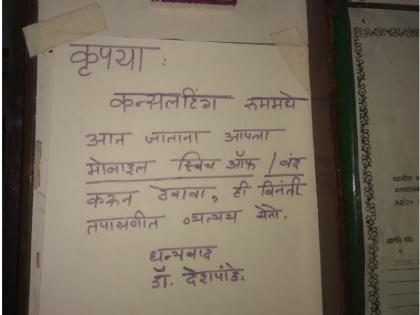 कृपया :
कन्सलटिंग रुममधे
आत जाताना आपला
मोबाइल स्विच ऑफ / बंद
करुन ठेवावा, ही विनंती.
तपासणीत व्यत्यय येतो.
धन्यवाद
डॉ. देशपांडे.